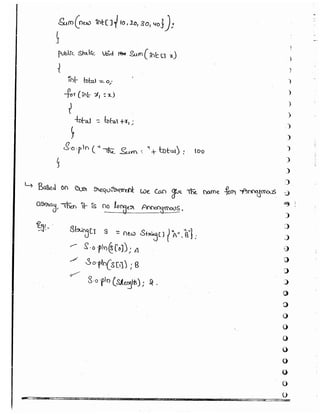 Sum(new int[]{10,20,30,40});
}
public static void Sum(int[] x)
{
int total = 0;
for(int x1 : x)
{
total = total + x1;
}
S.o.pln("The Sum : "+ total); 100
}
↳ Based on our requirement we can give the name for Annonymous
array. Then it is no longer Annonymous.
Eg:- String[] s = new String[]{"A", "B"};
S.o.pln(s[0]); A
S.o.pln(s[1]); B
S.o.pln(s.length); 2.